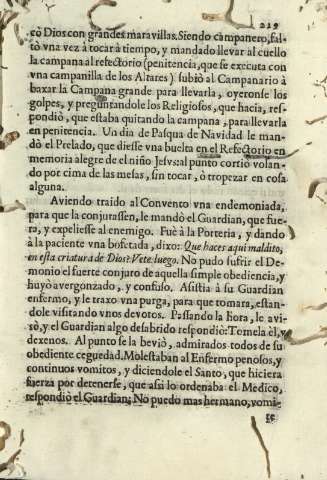 219
cò Dios con grandes maravillas. Siendo campanero, fal-
tò vna vez à tocar à tiempo, y mandado llevar al cuello
la campana al refectorio (penitencia, que se executa con
vna campanilla de los Altares) subiò al Campanario à
baxar la Campana grande para llevarla, oyeronse los
golpes, y preguntandole los Religiosos, que hacia, res-
pondiò, que estaba quitando la campana, para llevarla
en penitencia. Vn dia de Pasqua de Navidad le man-
dò el Prelado, que diesse vna buelta en el Refectorio en
memoria alegre de el niño Jesvs: al punto cortiò volan-
do por cima de las mesas, sin tocar, ò tropezar en cosa
alguna.
Aviendo traido al Convento vna endemoniada,
para que la conjurassen, le mandò el Guardian, que fue-
ra, y expeliesse al enemigo. Fuè à la Porteria, y dando
à la paciente vna bofetada, dixo: Que haces aqui maldito,
en esta criatura de Dios? Vete luego. No pudo sufrir el De-
monio el fuerte conjuro de aquella simple obediencia, y
huyò avergonzado, y confuso. Asistia à su Guardian
enfermo, y le traxo vna purga, para que tomara, estan-
dole visitando vnos devotos. Passando la hora, le avi-
sò, y el Guardian algo desabrido respondiò: Tomela èl, y
dexenos. Al punto se la beviò, admirados todos de su
obediente ceguedad. Molestaban al Enfermo penosos, y
continuos vomitos, y diciendole el Santo, que hiciera
fuerza por detenerse, que assi lo ordenaba el Medico,
respondiò el Guardian: No puedo mas hermano, vomi-